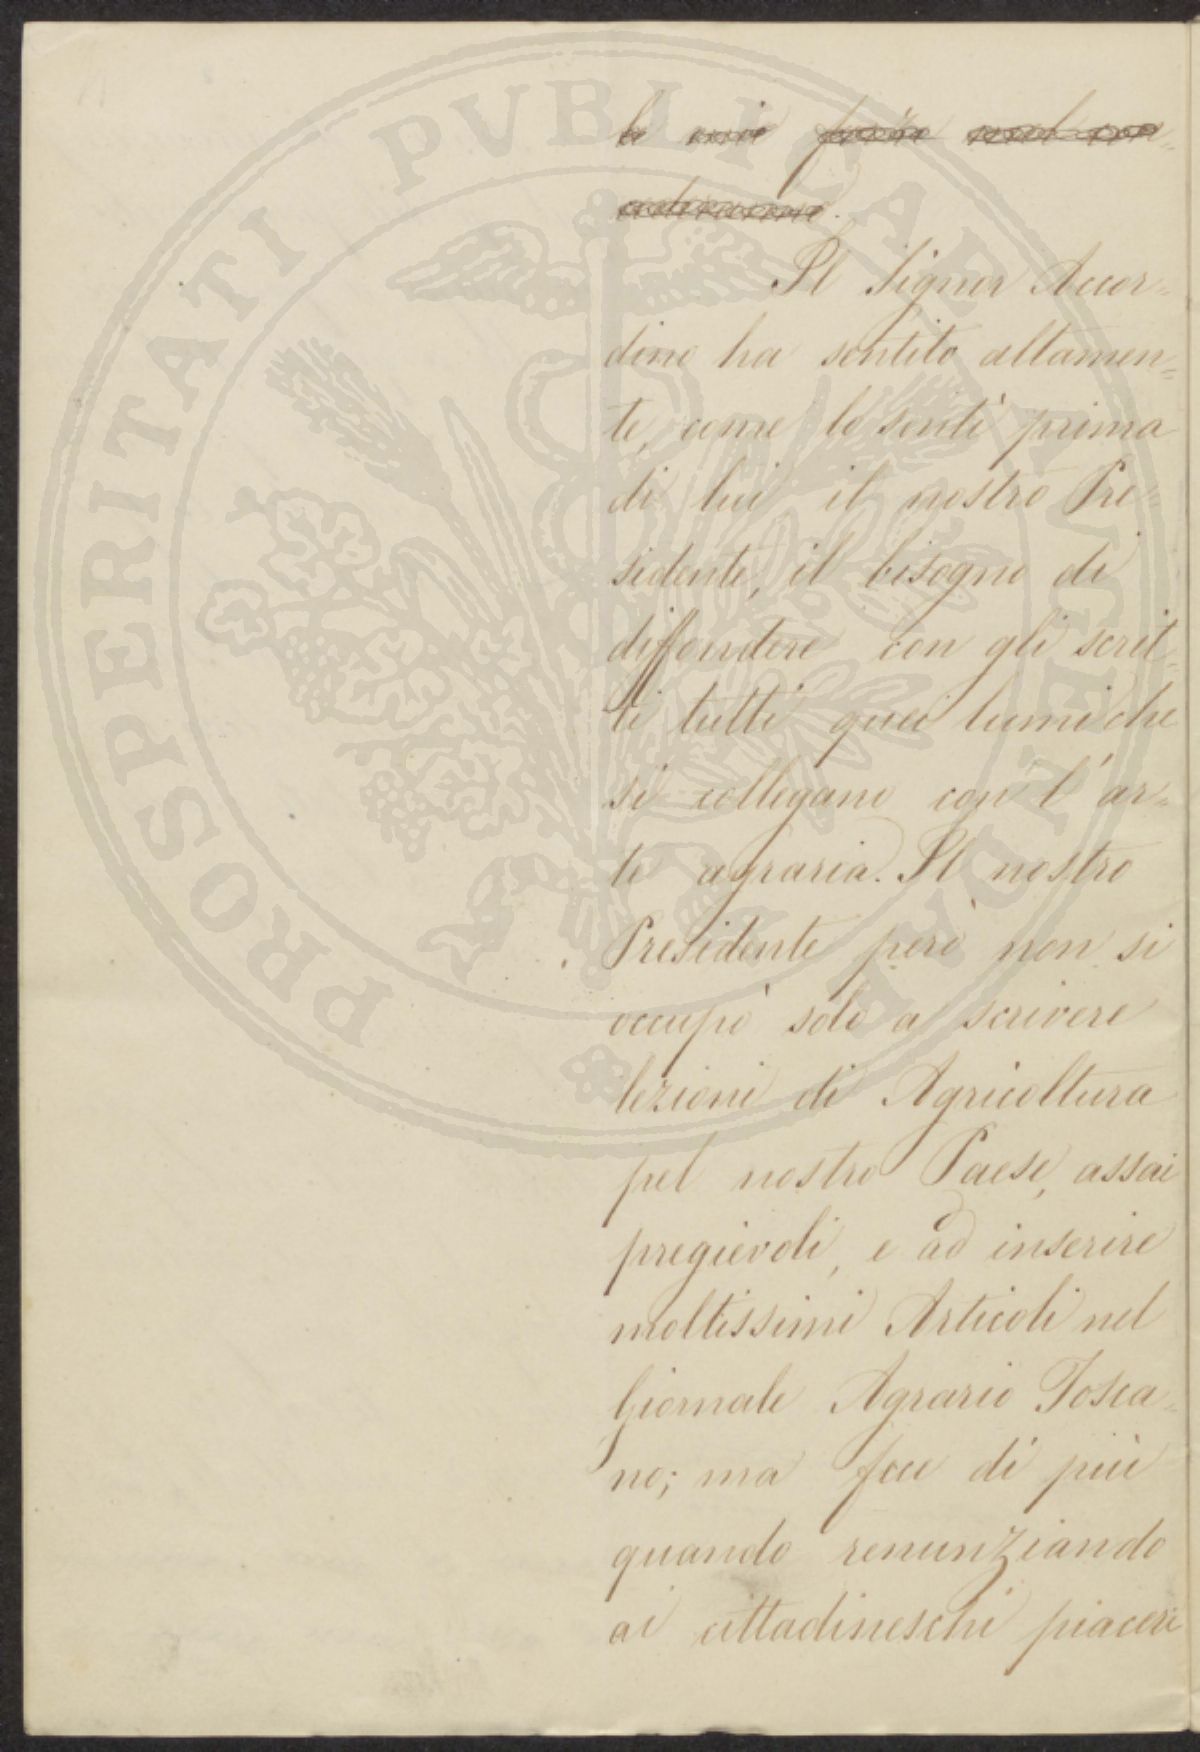 PROSPERITATI PVBLICAE AVGENDAE
Il Signor Accor=
dino ha sentito altamen=
te, come lo sentì prima
di lui il nostro Pre=
sidente, il bisogno di
diffondere con gli scrit=
ti tutti quei lumi che
si collegano con l'ar=
te agraria. Il nostro
Presidente però non si
occupò solo a scrivere
lezioni di Agricoltura
pel nostro Paese, assai
pregievoli, e ad inserire
moltissimi Articoli nel
Giornale Agrario Tosca=
no; ma fece di più
quando renunziando
ai cittadineschi piaceri